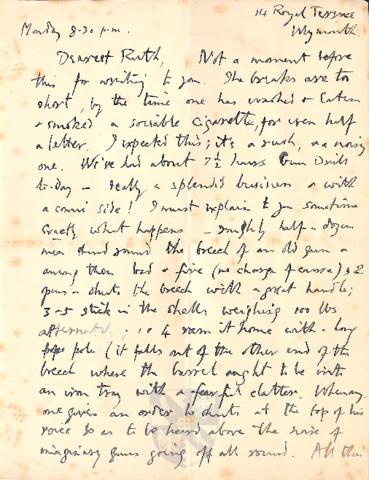 14 Royal Terrace
Weymouth.
Monday 8-30 p.m.
Dearest Ruth, Not a moment before
this for writing to you. The breaks are too
short, by the time one has washed & eaten
& smoked a sociable cigarette, for even half
a letter. I expected this; it's a rush, & a noisy
one. We've had about 7½ hours Gun Drill
to-day – really a splendid business & with
a comic side! I must explain to you sometime
exactly what happens – roughly half a dozen
men stand round the breech of an old gun &
among them load & fire (no charge of course); 2
opens & shuts the breech with a great handle;
3 & 5 stick in the shells weighing 100 lbs
alternately, 4 ram it home with a long
pole (it falls out of the other end of the
breech where the barrel ought to be into
an iron tray with a fearful clatter. Whenever
one gives an order he shouts at the top of his
voice so as to be heard above the noise of
imaginary guns going off all round. All this